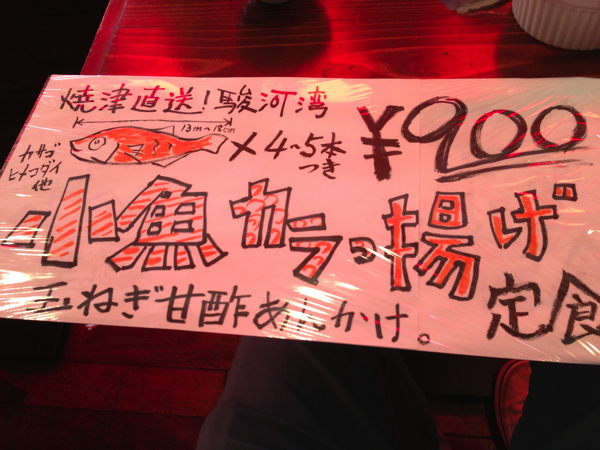 焼津直送!駿河湾
13m〜18cm
カサゴ
ヒメコダイ
他
×4〜5本
つき
¥900
小魚カラっ揚げ
定食
玉ねぎ甘酢あんかけ。